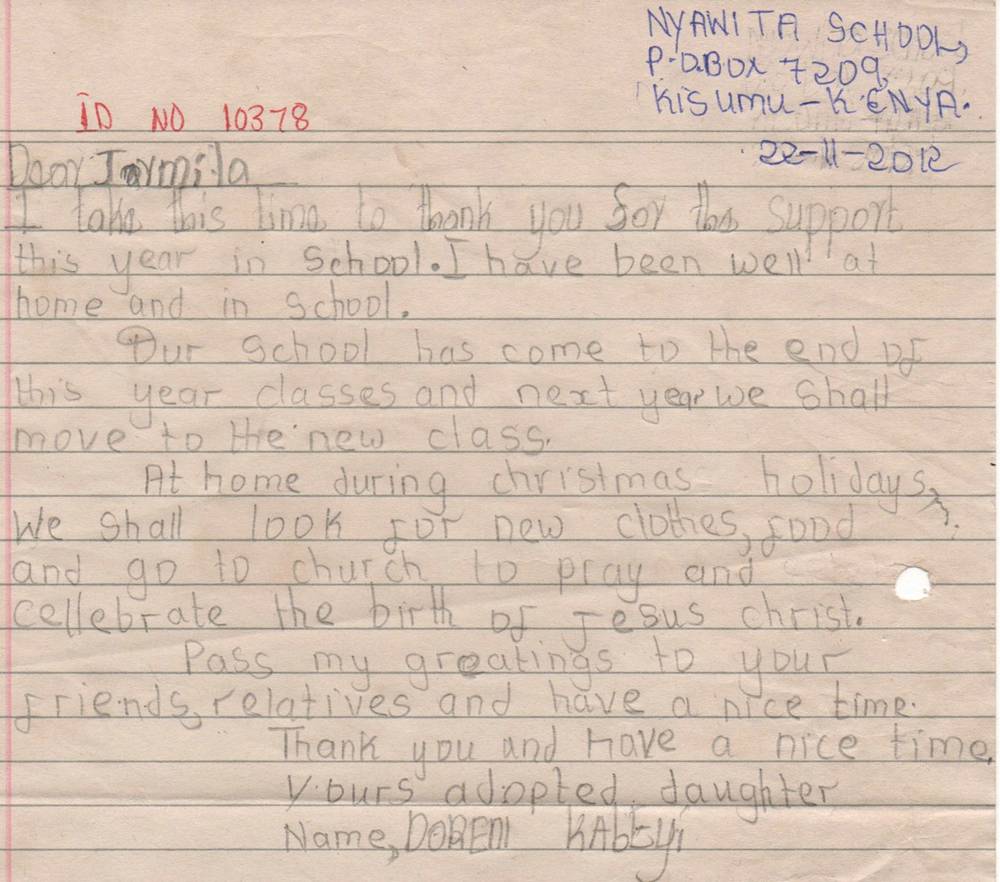 NYAWITA SCHOOL,
P.O.BOX 7209,
KISUMU - KENYA.
ID NO 10378
22-11-2012
Dear Jarmila
I take this time to thank you for the support
this year in school. I have been well at
home and in school.
Our school has come to the end of
this year classes and next year we shall
move to the new class.
At home during christmas holidays,
we shall look for new clothes, food
and go to church to pray and
cellebrate the birth of Jesus christ.
Pass my greatings to your
friends, relatives and have a nice time.
Thank you and have a nice time.
Yours adopted daughter
Name,